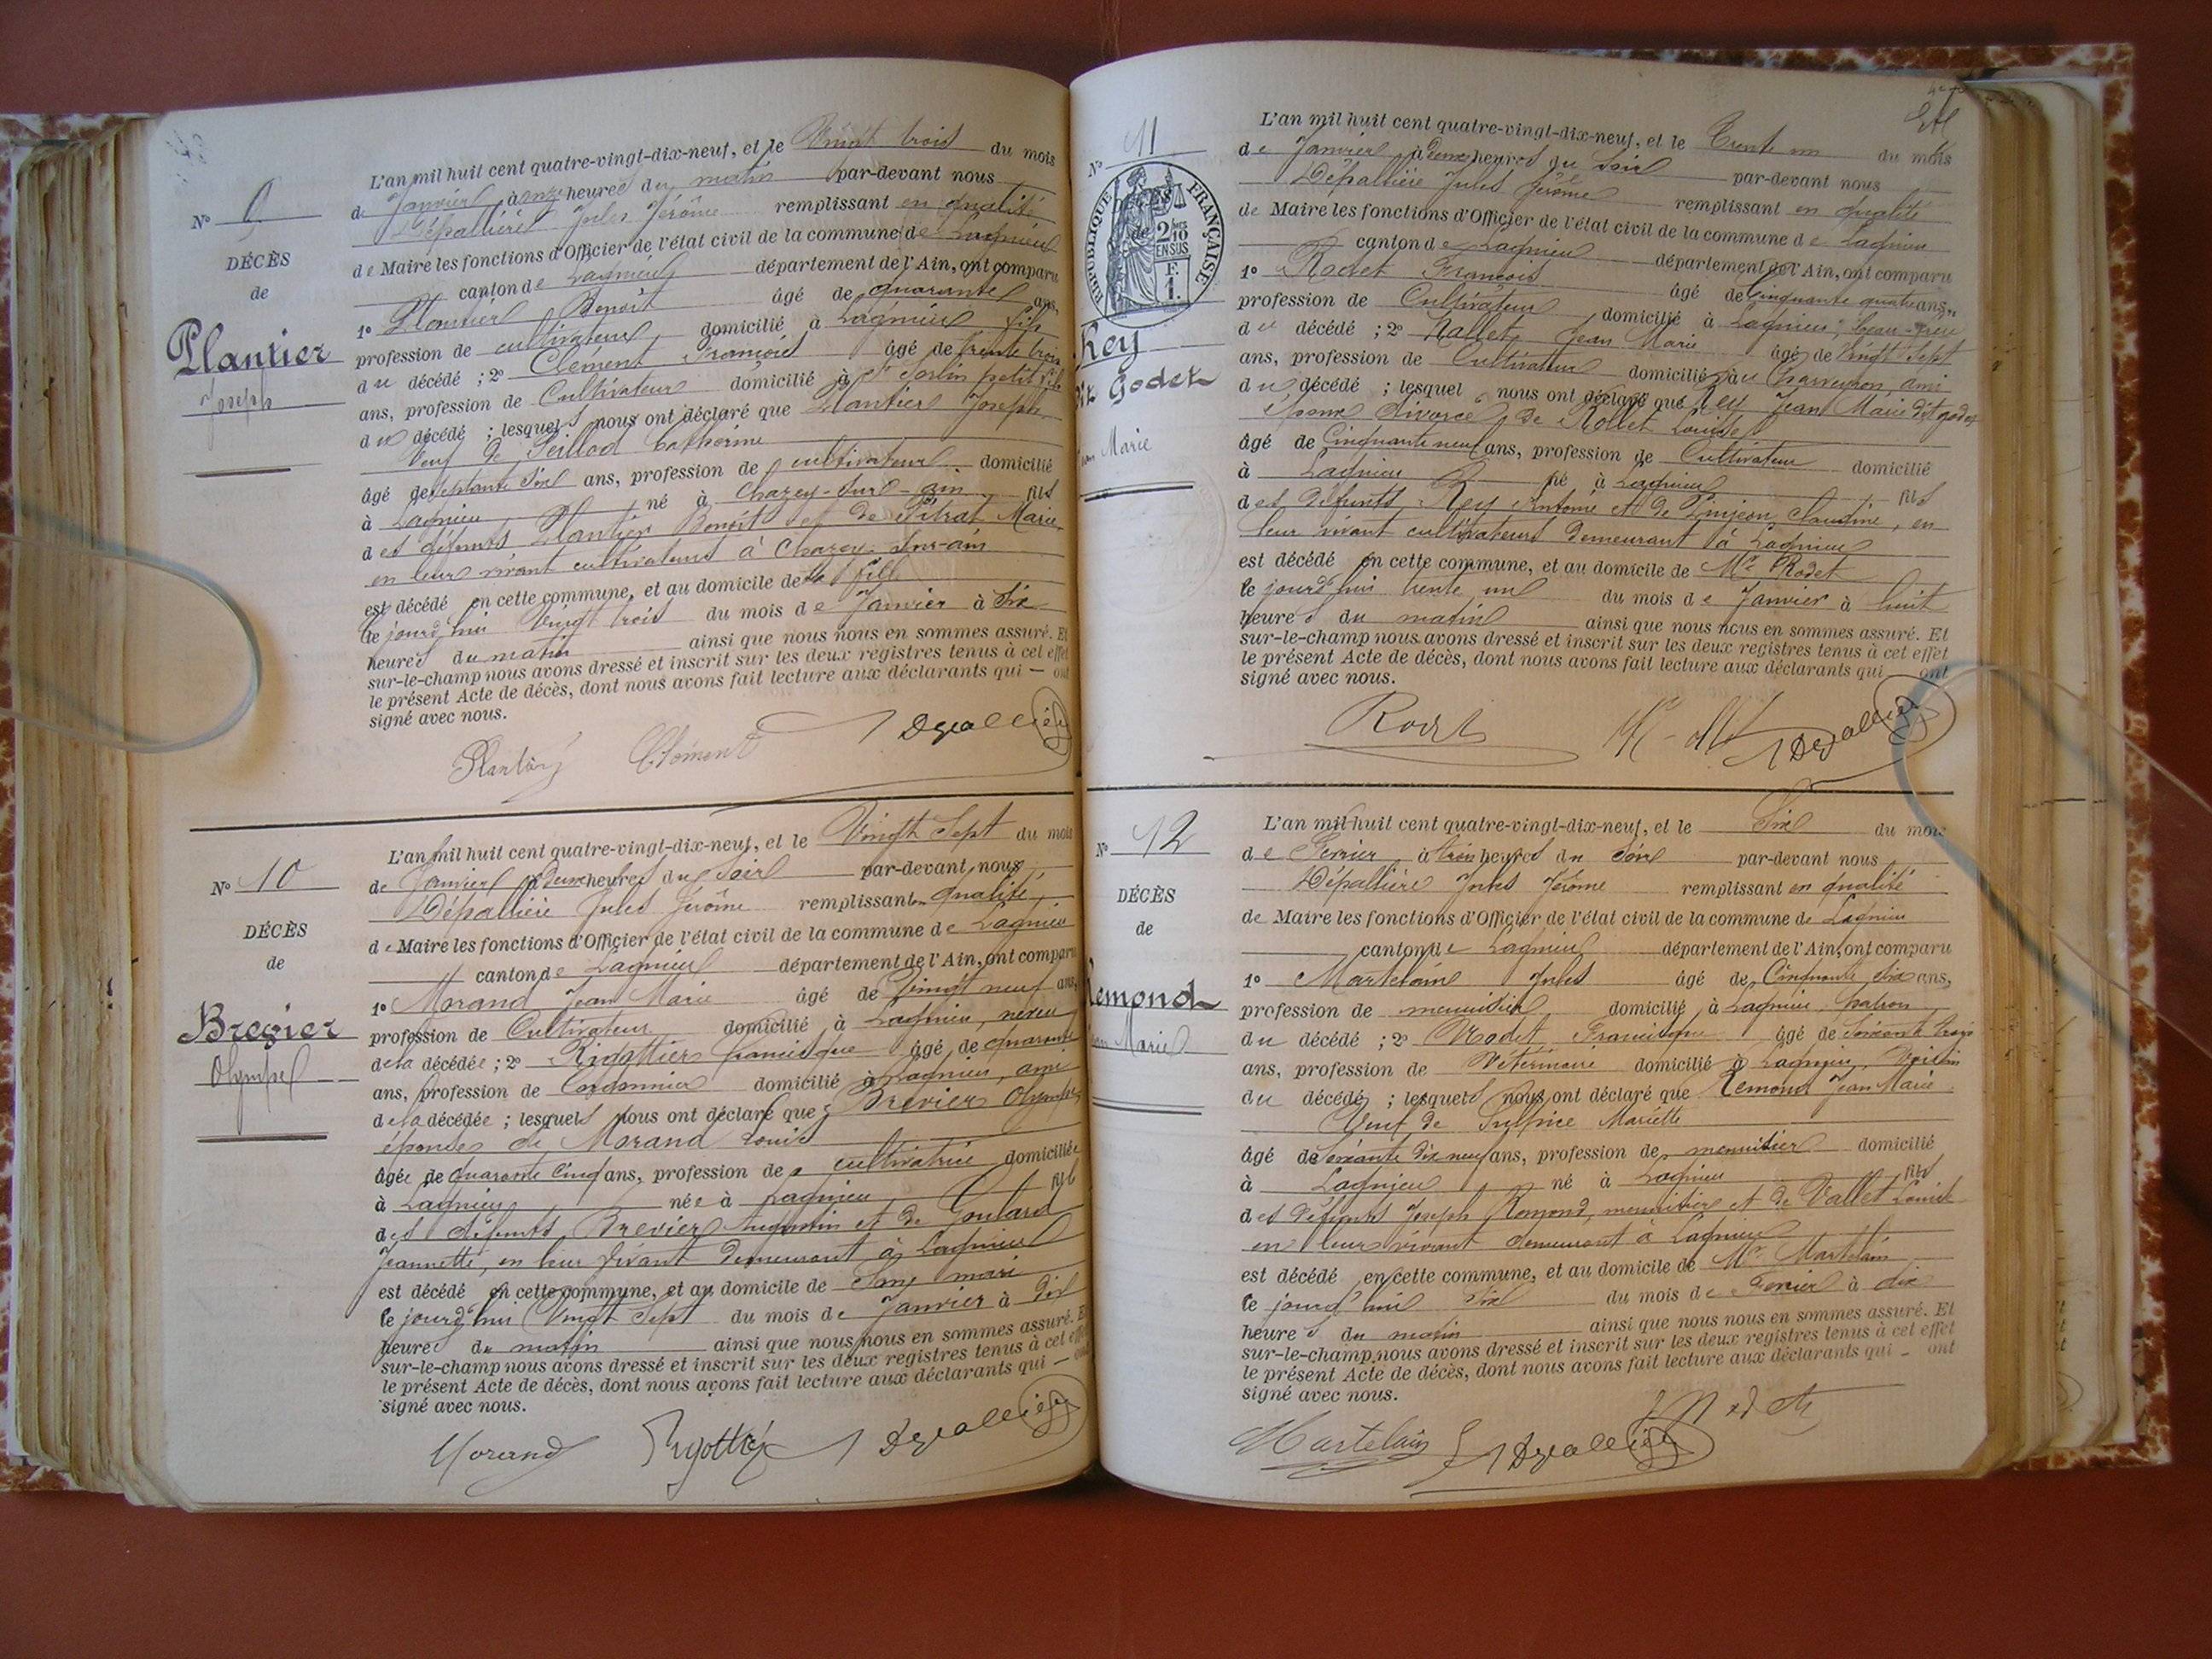 L'an mil huit cent quatre-vingt-dix-neuf, et le Vingt trois du mois
de Janvier à onze heures du matin par-devant nous
Dépallière Jules Jérôme remplissant en qualité
de Maire les fonctions d'Officier de l'état civil de la commune de Lagnieu
canton de Lagnieu département de l'Ain, ont comparu
1º Plantier Benoît âgé de quarante ans,
profession de cultivateur domicilié à Lagnieu fils
du décédé ; 2º Clément François âgé de trente trois
ans, profession de Cultivateur domicilié à St Sorlin petit fils
du décédé ; lesquels nous ont déclaré que Plantier Joseph
Veuf de Peillod Catherine
âgé de septante six ans, profession de cultivateur domicilié
à Lagnieu né à Chazey-sur-ain fils
des défunts Plantier Benoît et de Pitrat Marie
en leur vivant cultivateurs à Chazey-sur-ain
est décédé en cette commune, et au domicile de sa fille
le jourd'hui Vingt trois du mois de Janvier à Six
heures du matin ainsi que nous nous en sommes assuré. Et
sur-le-champ nous avons dressé et inscrit sur les deux registres tenus à cet effet
le présent Acte de décès, dont nous avons fait lecture aux déclarants qui — ont
signé avec nous.
Nº 9
DÉCÈS
de
Plantier
Joseph
Plantier Clément Depallière
L'an mil huit cent quatre-vingt-dix-neuf, et le Vingt Sept du mois
de Janvier à deux heures du Soir par-devant nous
Dépallière Jules Jérôme remplissant en qualité
de Maire les fonctions d'Officier de l'état civil de la commune de Lagnieu
canton de Lagnieu département de l'Ain, ont comparu
1º Morand Jean Marie âgé de Vingt neuf ans,
profession de Cultivateur domicilié à Lagnieu, neveu
de la décédée ; 2º Rigottier Francisque âgé de quarante
ans, profession de Cordonnier domicilié à Lagnieu, ami
de la décédée ; lesquels nous ont déclaré que Brevier Olympe
épouse de Morand Louis
âgée de quarante cinq ans, profession de cultivatrice domiciliée
à Lagnieu née à Lagnieu fille
des défunts Brevier Augustin et de Goutard
Jeannette, en leur vivant demeurant à Lagnieu
est décédé en cette commune, et au domicile de Son mari
le jourd'hui Vingt Sept du mois de Janvier à dix
heures du matin ainsi que nous nous en sommes assuré. Et
sur-le-champ nous avons dressé et inscrit sur les deux registres tenus à cet effet
le présent Acte de décès, dont nous avons fait lecture aux déclarants qui — ont
signé avec nous.
Nº 10
DÉCÈS
de
Brevier
Olympe
Morand Rigottier Depallière
L'an mil huit cent quatre-vingt-dix-neuf, et le Trente un du mois
de Janvier à deux heures du Soir par-devant nous
Dépallière Jules Jérôme remplissant en qualité
de Maire les fonctions d'Officier de l'état civil de la commune de Lagnieu
canton de Lagnieu département de l'Ain, ont comparu
1º Rodet François âgé de Cinquante quatre ans,
profession de Cultivateur domicilié à Lagnieu, beau-frère
du décédé ; 2º Nallet Jean Marie âgé de Vingt Sept
ans, profession de Cultivateur domicilié au Charveyron ami
du décédé ; lesquels nous ont déclaré que Rey Jean Marie dit godet
époux divorcé de Rollet Louise
âgé de Cinquante neuf ans, profession de Cultivateur domicilié
à Lagnieu né à Lagnieu fils
des défunts Rey Antoine et de Pinjeon Claudine, en
leur vivant cultivateurs demeurant à Lagnieu
est décédé en cette commune, et au domicile de Mr Rodet
le jourd'hui trente un du mois de Janvier à huit
heures du matin ainsi que nous nous en sommes assuré. Et
sur-le-champ nous avons dressé et inscrit sur les deux registres tenus à cet effet
le présent Acte de décès, dont nous avons fait lecture aux déclarants qui ont
signé avec nous.
Nº 11
RÉPUBLIQUE FRANÇAISE
2/10 EN SUS
F. 1.
Rey
dit Godet
Jean Marie
Rodet Depallière
L'an mil huit cent quatre-vingt-dix-neuf, et le Six du mois
de Fevrier à trois heures du Soir par-devant nous
Dépallière Jules Jérôme remplissant en qualité
de Maire les fonctions d'Officier de l'état civil de la commune de Lagnieu
canton de Lagnieu département de l'Ain, ont comparu
1º Martelain Jules âgé de Cinquante six ans,
profession de menuisier domicilié à Lagnieu patron
du décédé ; 2º Rodet Francisque âgé de Soixante trois
ans, profession de Vétérinaire domicilié à Lagnieu, Voisin
du décédé ; lesquels nous ont déclaré que Remond Jean Marie
Veuf de Sulpice Mariette
âgé de soixante dix neuf ans, profession de menuisier domicilié
à Lagnieu né à Lagnieu fils
des défunts Joseph Remond, menuisier et de Vallet Louise
en leur vivant demeurant à Lagnieu
est décédé en cette commune, et au domicile de Mr Martelain
le jourd'hui Six du mois de Fevrier à dix
heures du matin ainsi que nous nous en sommes assuré. Et
sur-le-champ nous avons dressé et inscrit sur les deux registres tenus à cet effet
le présent Acte de décès, dont nous avons fait lecture aux déclarants qui - ont
signé avec nous.
Nº 12
DÉCÈS
de
Remond
Jean Marie
Martelain Depallière